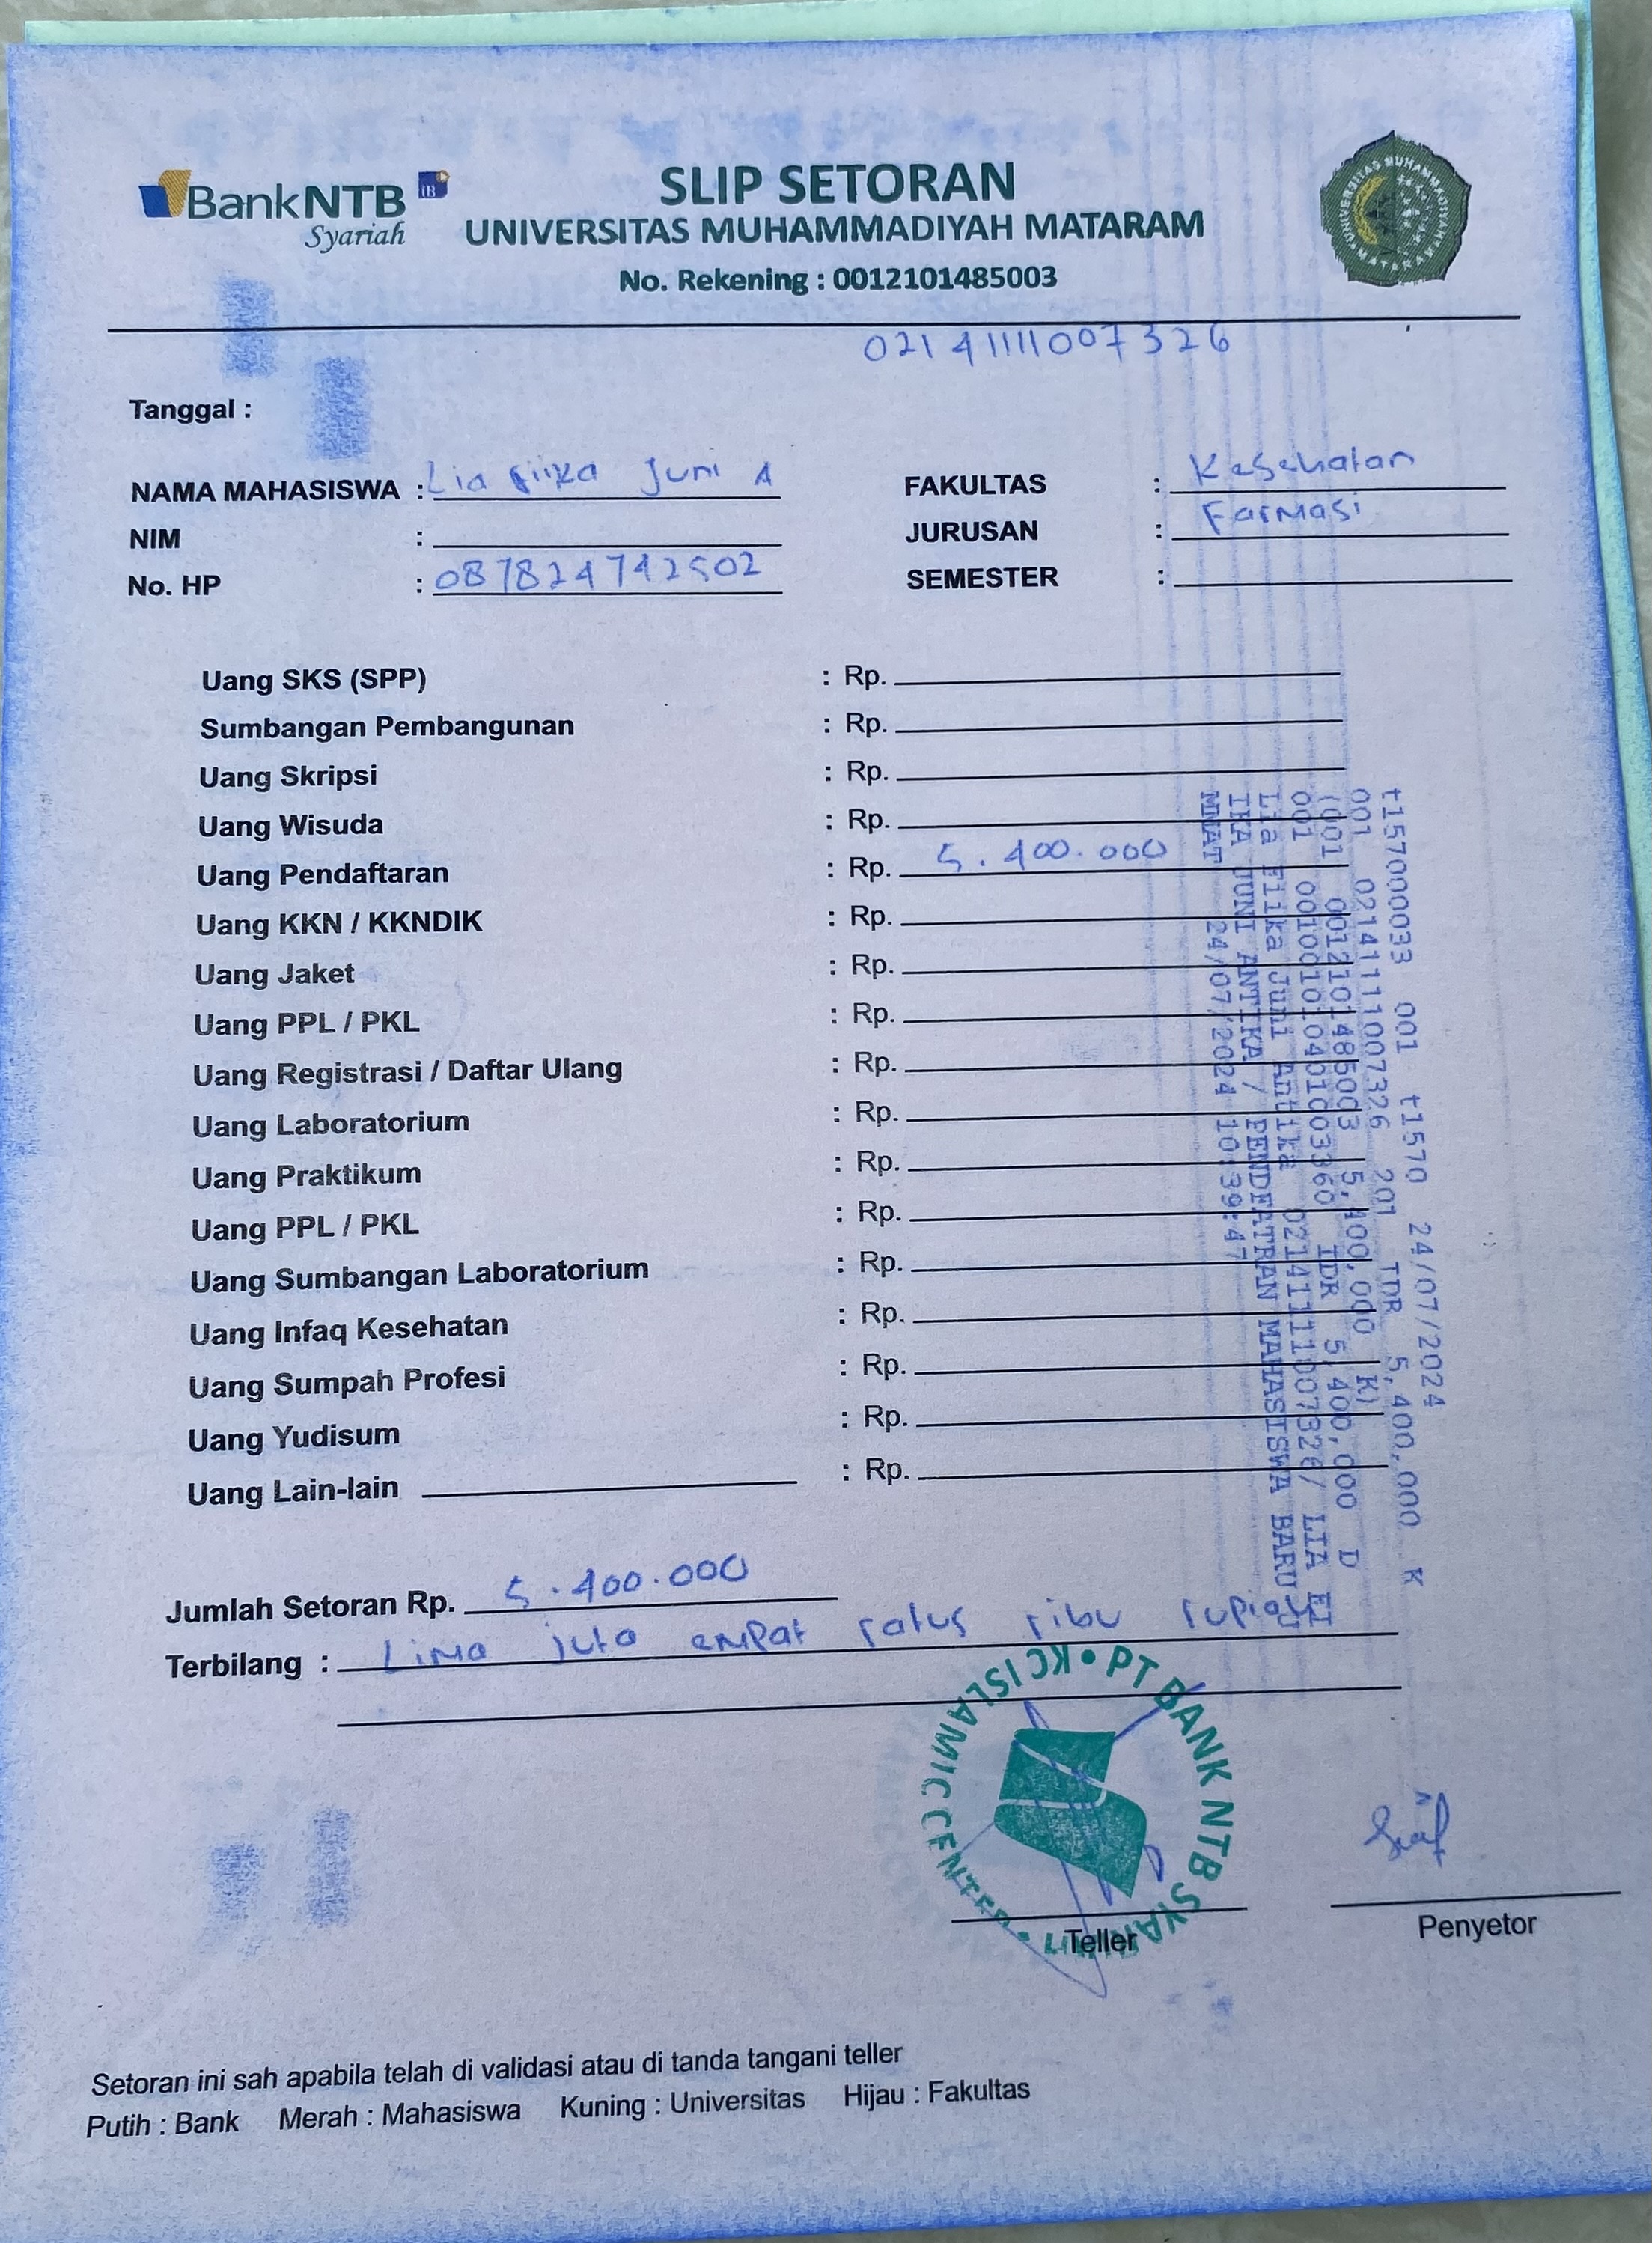 BankNTB iB
Syariah
SLIP SETORAN
UNIVERSITAS MUHAMMADIYAH MATARAM
No. Rekening : 0012101485003
UNIVERSITAS MUHAMMADIYAH MATARAM
02141111007326
Tanggal :
NAMA MAHASISWA : Lia Juni A
NIM :
No. HP : 087824742502
FAKULTAS : Kesehatan
JURUSAN : Farmasi
SEMESTER :
Uang SKS (SPP) : Rp.
Sumbangan Pembangunan : Rp.
Uang Skripsi : Rp.
Uang Wisuda : Rp.
Uang Pendaftaran : Rp. 5.400.000
Uang KKN / KKNDIK : Rp.
Uang Jaket : Rp.
Uang PPL / PKL : Rp.
Uang Registrasi / Daftar Ulang : Rp.
Uang Laboratorium : Rp.
Uang Praktikum : Rp.
Uang PPL / PKL : Rp.
Uang Sumbangan Laboratorium : Rp.
Uang Infaq Kesehatan : Rp.
Uang Sumpah Profesi : Rp.
Uang Yudisum : Rp.
Uang Lain-lain : Rp.
t1570000033 001 t1570 24/07/2024
001 021411110073326 201 IDR 5,400,000 K
(001 0012101485003 5,400,000 K)
001 001001010401003360 IDR 5,400,000 D
Lia Elika Juni Antika 021411110073326/ LIA EL
IKA JUNI ANTIKA / PENDAFTARAN MAHASISWA BARU U
MMAT 24/07/2024 10:39:47
Jumlah Setoran Rp. 5.400.000
Terbilang : Lima juta empat ratus ribu rupiah
PT BANK NTB SYARIAH • KC ISLAMIC CENTER •
Teller
Penyetor
Setoran ini sah apabila telah di validasi atau di tanda tangani teller
Putih : Bank Merah : Mahasiswa Kuning : Universitas Hijau : Fakultas